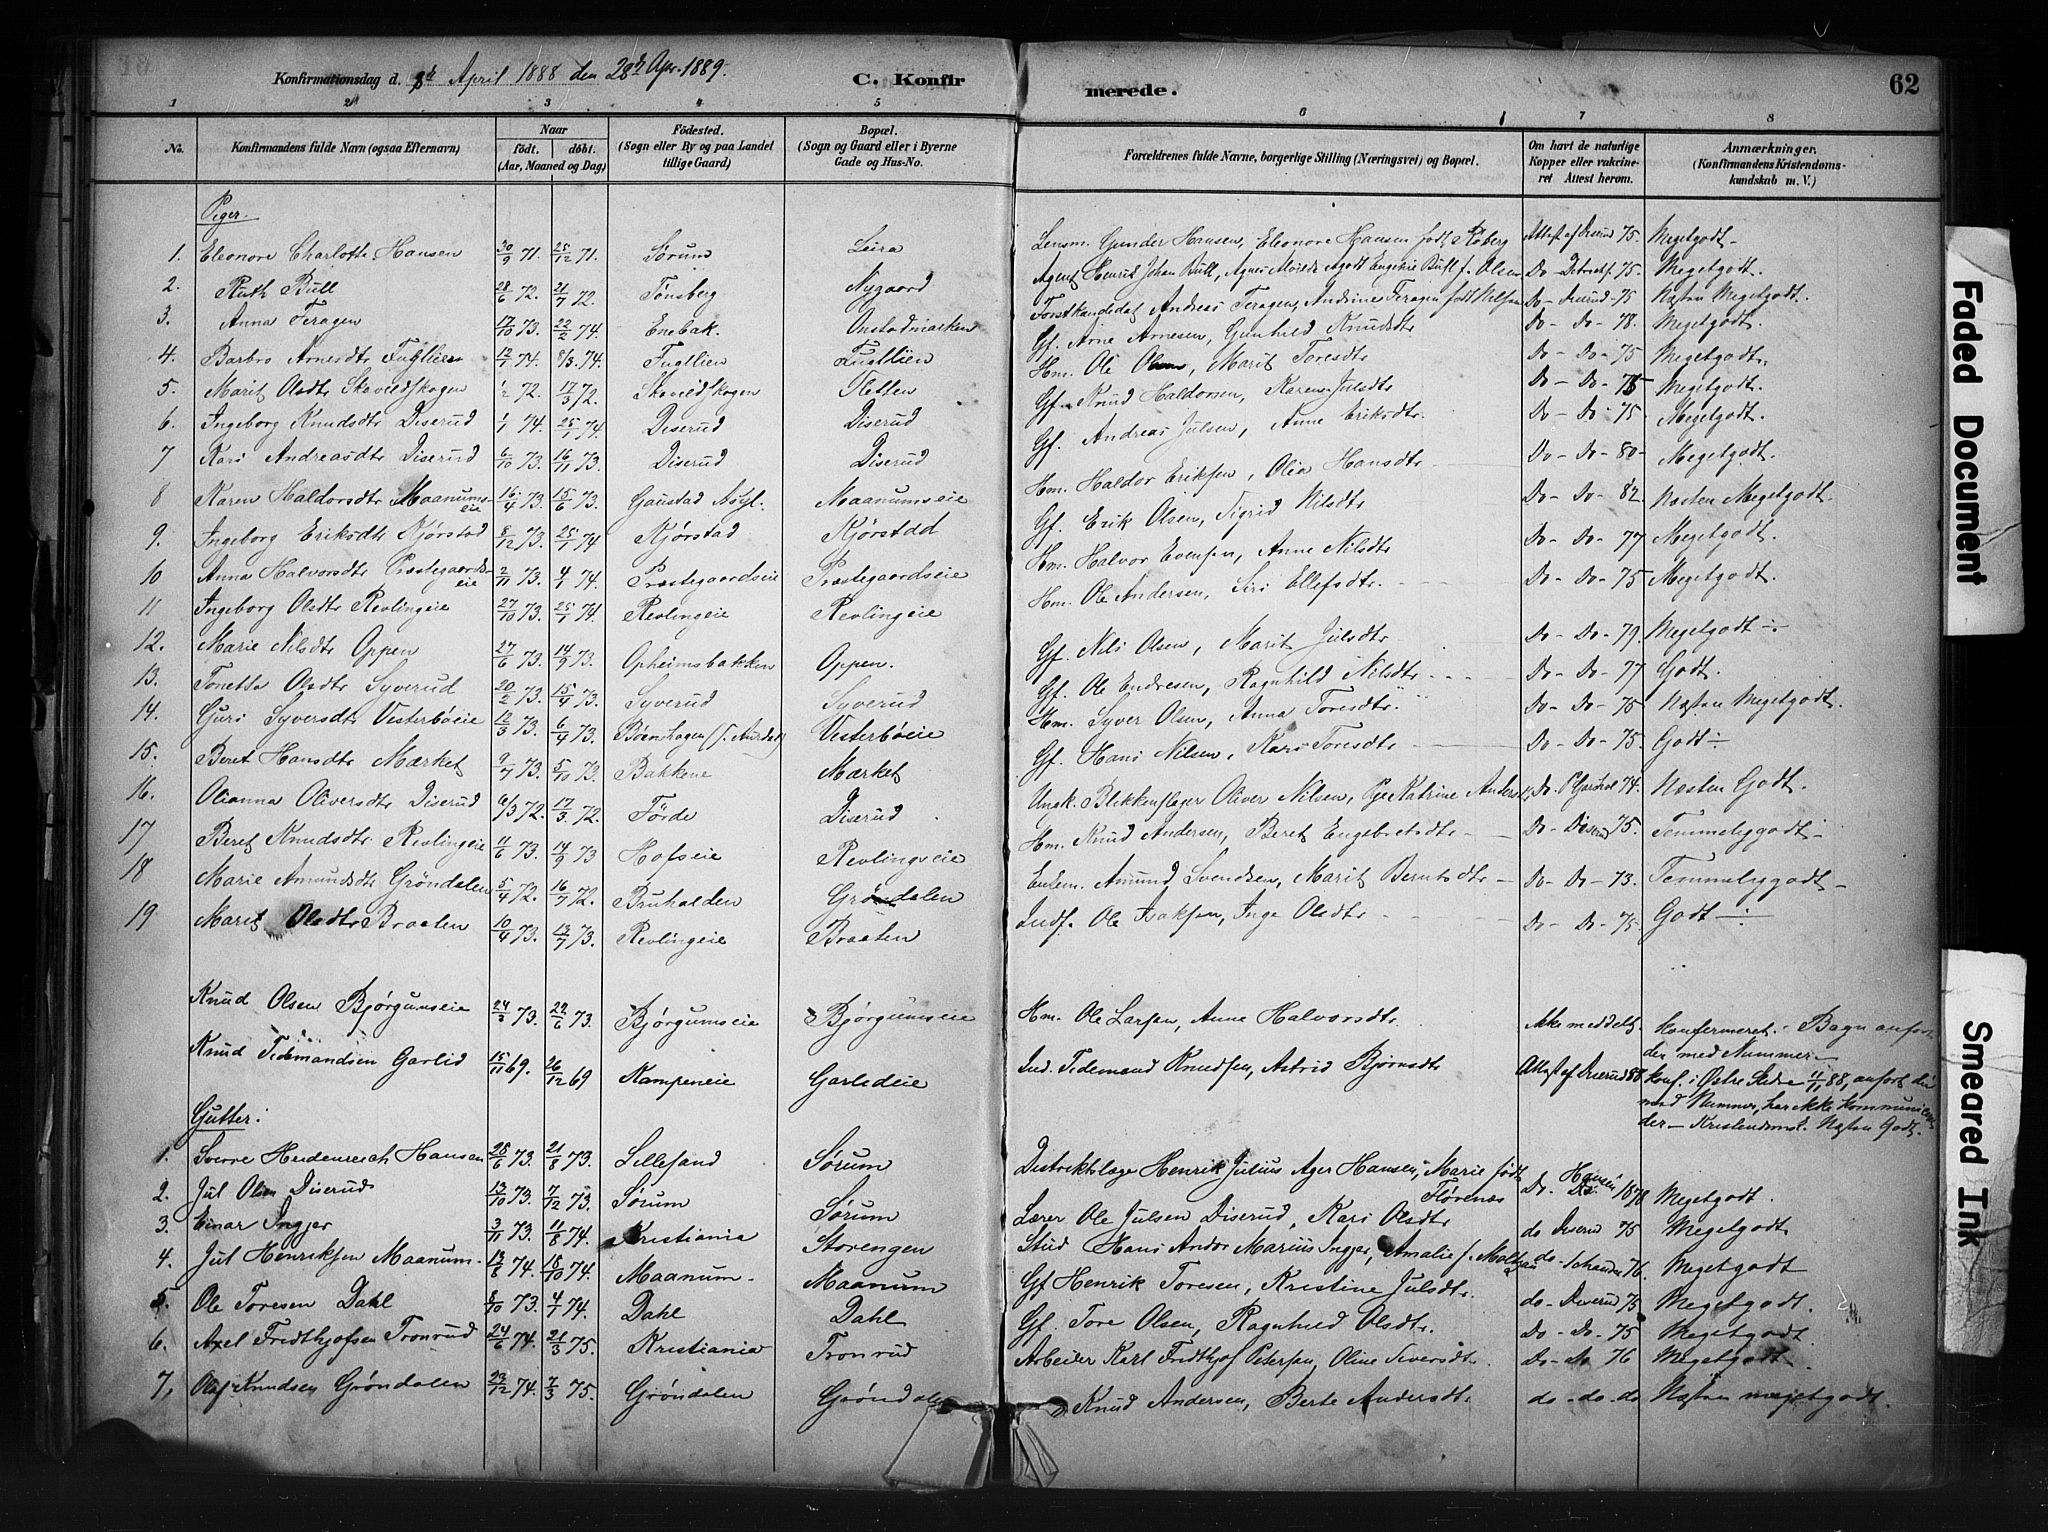 Konfirmationsdag d. 8d April 1888 den 28d Apr. 1889.
C. Konfir merede.
62
1 2 3 4 5 6 7 8
No. Konfirmandens fulde Navn (ogsaa Efternavn) Naar født, døbt. (Aar, Maaned og Dag) Fødested. (Sogn eller By og paa Landet tillige Gaard) Bopæl. (Sogn og Gaard eller i Byerne Gade og Hus-No. Forældrenes fulde Navne, borgerlige Stilling (Næringsvei) og Bopæl. Om havt de naturlige Kopper eller vaccineret Attest herom. Anmærkninger. (Konfirmandens Kristendomskundskab m. V.)
Piger.
1. Eleonore Charlotte Hansen 30/9 71. 25/12 71. Sørum Leira Lensm. Gunder Hansen, Eleonore Hansen født Roberg Attest af Diserud 75. Megetgodt
2. Ruth Bull 28/6 72. 21/7 72. Tønsberg Nygaard Agent Henrik Johan Bull, f. Olsen Do 75. Megetgodt.
3. Anna Feragen 17/10 73. 22/2 74. Enebak. Onstadmarken Forstkandidat Andreas Feragen, Andrine Feragen født Nilsen Do - Diserud - 75 Næsten Megetgodt.
4. Barbro Arnesdtr Fugllien 12/1 74. 8/3 74. Fugllien Fugllien Gf. Arne Arnesen, Gunhild Knudsdtr Do - Do - 78. Megetgodt.
5. Marit Olsdtr Skovledskogen 1/2 72. 17/3 72. Skovledskogen Fletten Hm. Ole Olsen, Marit Toresdtr Do - Do - 75 Megetgodt.
6. Ingeborg Knudsdtr Diserud 1/1 74. 25/1 74. Diserud Diserud Gf. Knud Haldorsen, Karen Julsdtr Do - Do - 75 Megetgodt.
7 Kari Andreasdtr Diserud 6/10 73. 16/11 73. Diserud Diserud Gf. Andreas Julsen, Anne Eriksdtr. Do - Do - 75. Megetgodt.
8 Karen Haldorsdtr Maanumseie 16/4 73. 15/6 73. Gaustad Asyl. Maanumseie Hm. Haldor Eriksen, Olia Hansdtr Do - Do - 80 - Megetgodt.
9. Ingeborg Eriksdtr Kjørstad 8/12 73. 25/1 74 Kjørstad Kjørstad Gf. Erik Olsen, Sigrid Nilsdtr Do - Do - 82. Næsten Megetgodt.
10 Anna Halvorsdtr Præstegaardseie 2/11 73. 4/1 74. Præstegaardseie Præstegaardseie Hm. Halvor Evensen, Anne Nilsdtr Do - Do - 77 Megetgodt.
11 Ingeborg Olsdtr Revlingeie 27/10 73. 25/1 74. Revlingeie Revlingeie Hm. Ole Andersen, Siri Ellefsdtr. Do - Do - 75 Megetgodt.
12. Marie Nilsdtr Oppen 27/6 73. 14/9 73. Opheimsbakken Oppen. Gf. Nils Olsen, Marit Julsdtr Do - Do - 79. Megetgodt -
13. Tonetta Olsdtr Syverud 20/2 73. 15/4 73. Syverud Syverud Gf. Ole Endresen, Ragnhild Nilsdtr. Do - Do - 77 Godt.
14. Guri Syversdtr Vesterbøeie 12/3 73. 6/4 73. Bøenshagen (S. Aurdal) Vesterbøeie Hm. Syver Olsen, Anna Toresdtr. Do - Do - 75 Næsten Megetgodt.
15. Beret Hansdtr Mærket 9/7 73. 5/10 73. Bakkene Mærket Gf. Hans Nilsen, Kari Toresdtr Do - Do - 75. Godt -
16. Olianna Oliversdtr Diserud 6/3 72. 17/3 72. Førde Diserud Ungk. Blikkenslager Oliver Nilsen, Pge Katrine Do. 74. Næsten Godt.
17 Beret Knudsdtr Revlingeie 11/6 73. 14/9 73 Hofseie Revlingseie Hm. Knud Andersen, Beret Engebretsdtr Do - Diserud 75. Temmeliggodt -
18 Marie Amundsdtr Grøndalen 5/4 72. 16/7 72. Bruhalden Grøndalen Enkem. Amund Svendsen, Marit Berntsdtr Do - Do - 73. Temmeliggodt -
19 Marit Olsdtr Braaten 10/4 73. 13/7 73. Revlingeie Braaten Indf. Ole Isaksen, Inge Olsdtr Do - Do - 75 - Godt -
Knud Olsen Bjørgumseie 24/3 73. 22/6 73. Bjørgumseie Bjørgumseie Hm. Ole Larsen, Anne Halvorsdtr Ikke meddelt. Konfirmeret i Bagn anført der med Nummer -
Knud Tidemandsen Garlid 15/11 69. 26/12 69 Kampeneie Garlideie Ind. Tidemand Knudsen, Astrid Bjørnsdtr Attest af Diserud 88 konf. i Østre Slidre 11/11 88, anført der med Nummer, har ikke kommuniceret der - Kristendomsk. Næsten Godt.
Gutter:
1. Sverre Heidenreich Hansen 25/6 73. 21/8 73. Lillesand Sørum Distriktslæge Henrik Julius Ager Hansen, Marie født Flørenæs Do. Hansen 1878 Megetgodt.
2. Jul Olsen Diserud 13/10 73. 7/12 73. Sørum Sørum Lærer Ole Julsen Diserud, Kari Olsdtr do Diserud 75 Megetgodt
3. Einar Ingjer 3/11 73. 11/8 74. Kristiania Storengen Stud Hans Andor Marius Ingjer, Amalie f. do - 76. Megetgodt
4. Jul Henriksen Maanum. 13/8 74. 18/10 74. Maanum. Maanum Gf Henrik Toresen, Kristine Julsdtr. do - Diserud 75 Megetgodt.
5. Ole Toresen Dahl 8/10 73. 4/1 74. Dahl Dahl Gf. Tore Olsen, Ragnhild Olsdtr. Do - Do - 75 Megetgodt.
6. Axel Fridthjofsen Tronrud 24/6 74. 21/3 75. Kristiania Tronrud Arbeider Karl Fridthjof Petersen, Oline Siversdtr. Do - do 76 Megetgodt.
7, Olaf Knudsen Grøndalen 23/12 74. 7/3 75. Grøndalen Grøndalen Knud Andersen, Berte Andersdtr do - do - do Næsten megetgodt.
Faded Document
Smeared Ink